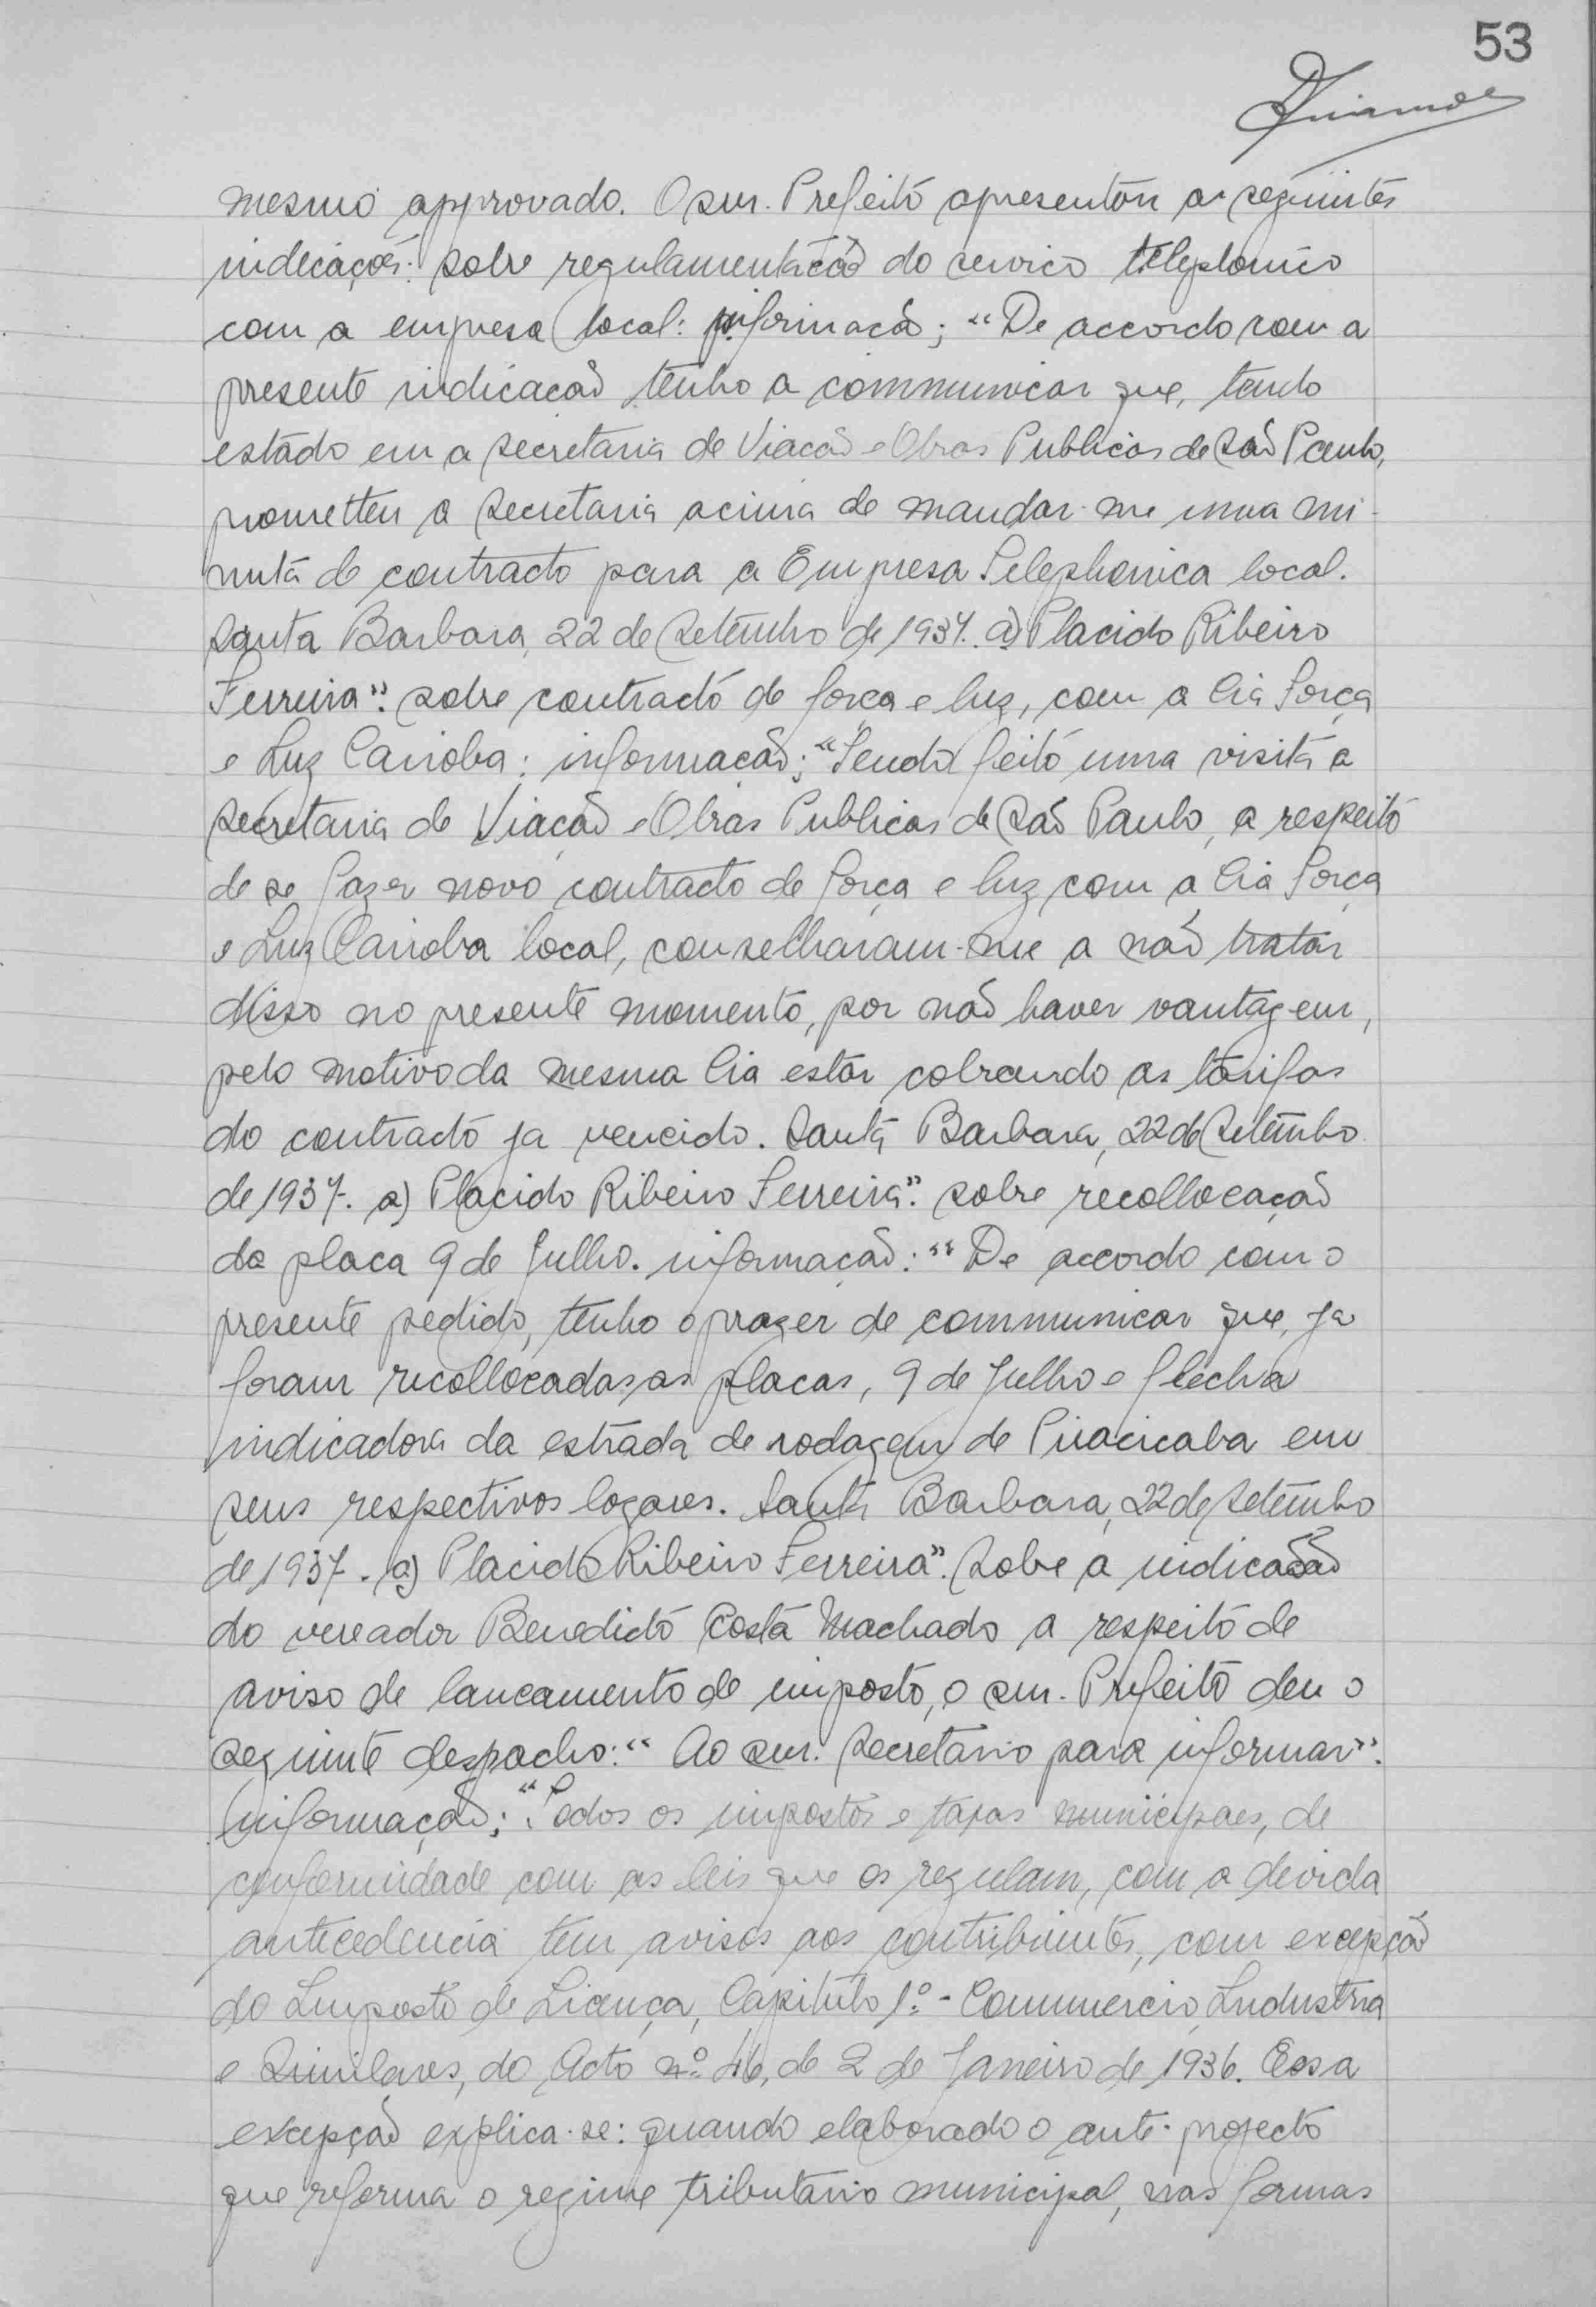 53
mesmo approvado. O snr. Prefeito apresentou as seguintes
indicações: sobre regulamentação do serviço telephonico
com a empresa local: informação; "De accordo com a
presente indicação tenho a communicar que, tendo
estado em a Secretaria de Viação e Obras Publicas de São Paulo,
prometteu a Secretaria acima de mandar-me uma mi-
nuta de contracto para a Empresa Telephonica local.
Santa Barbara, 22 de Setembro de 1937. a) Placido Ribeiro
Ferreira". sobre contracto de força e luz, com a Cia Força
e Luz Carioba: informação; "Tendo feito uma visita a
Secretaria de Viação e Obras Publicas de São Paulo, a respeito
de se fazer novo contracto de força e luz com a Cia Força
e Luz Carioba local, conselharam-me a não tratar
disso no presente momento, por não haver vantagem,
pelo motivo da mesma Cia estar cobrando as tarifas
do contracto ja vencido. Santa Barbara, 22 de Setembro
de 1937. a) Placido Ribeiro Ferreira". sobre recollocação
da placa 9 de Julho. informação: "De accordo com o
presente pedido, tenho o prazer de communicar que, ja
foram recollocadas as placas, 9 de Julho e flecha
indicadora da estrada de rodagem de Piracicaba em
seus respectivos logares. Santa Barbara, 22 de Setembro
de 1937. a) Placido Ribeiro Ferreira". Sobe a indicação
do vereador Benedicto Costa Machado a respeito de
aviso de lançamento de imposto, o snr. Prefeito deu o
seguinte despacho: "Ao snr. Secretario para informar".
Informação; "Todos os impostos e taxas municipaes, de
conformidade com as leis que os regulam, com a devida
antecedencia tem avisos aos contribuintes, com excepção
do Imposto de Licença, Capitulo 1º - Commercio, Industria
e Similares, do Acto nº 46, de 2 de Janeiro de 1936. Essa
excepção explica-se: quando elaborado o ante-projecto
que reforma o regime tributario municipal, nas formas